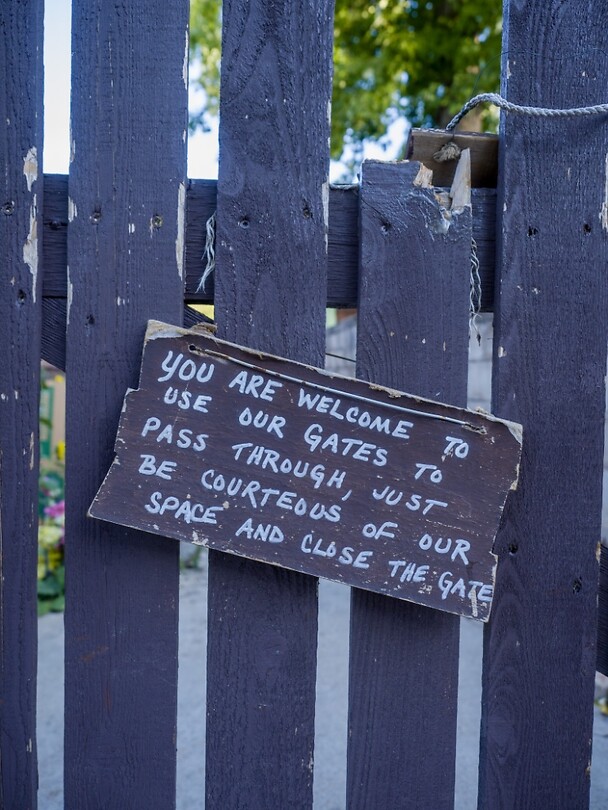 YOU ARE WELCOME TO
USE OUR GATES TO
PASS THROUGH, JUST
BE COURTEOUS OF OUR
SPACE AND CLOSE THE GATE